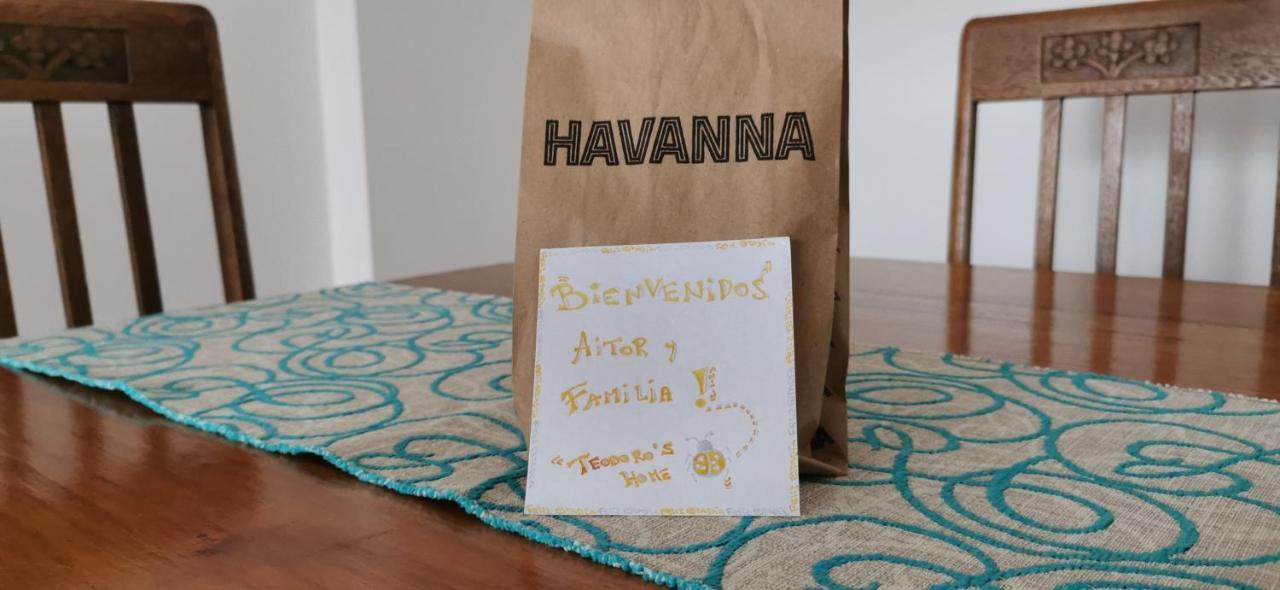 HAVANNA
BIENVENIDOS
AITOR Y
FAMILIA !
"TEODORO'S
HOME